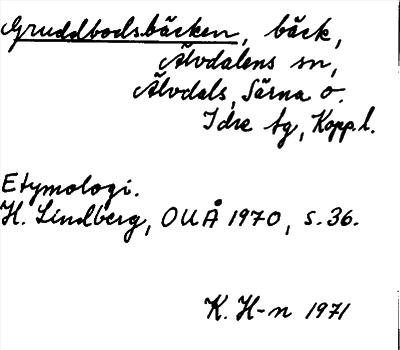 Gruddbodsbäcken, bäck,
Älvdalens sn,
Älvdals, Särna o.
Idre tg, Kopp.l.
Etymologi.
H. Lindberg, OUÅ 1970, s. 36.
K. H-n 1971